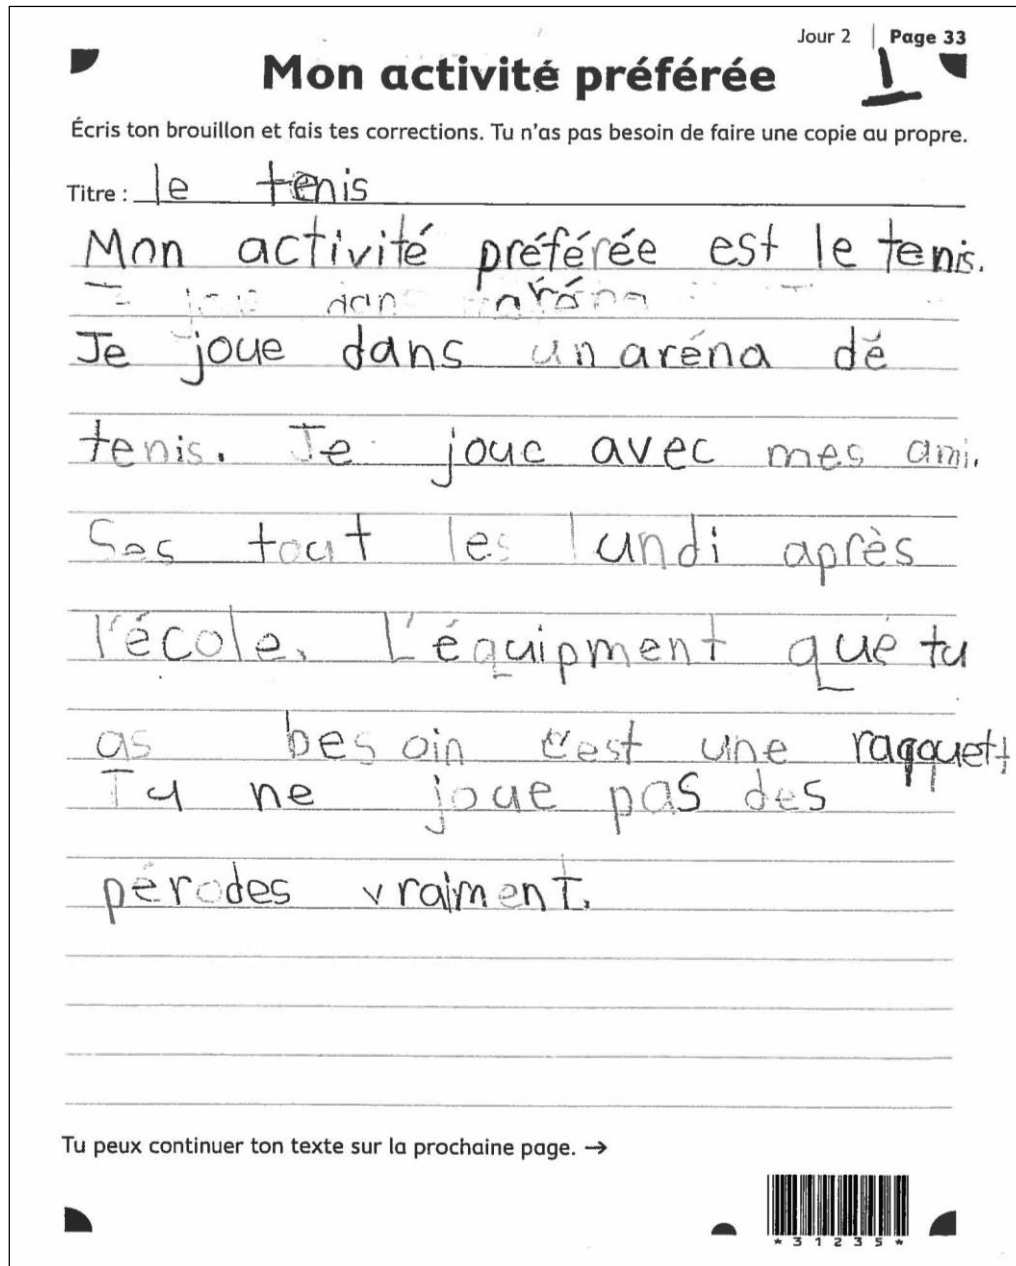 Jour 2 | Page 33
1
Mon activité préférée
Écris ton brouillon et fais tes corrections. Tu n'as pas besoin de faire une copie au propre.
Titre : le tenis
Mon activité préférée est le tenis.
dans aréna
Je joue dans un aréna dé
tenis. Je joue avec mes ami.
Ses tout les lundi après
l'école. L'équipment que tu
as besoin c'est une raqquett
Tu ne joue pas des
pérodes vraiment.
Tu peux continuer ton texte sur la prochaine page. →
*31235*